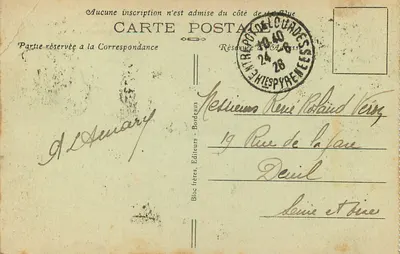 Aucune inscription n'est admise du côté de
CARTE POSTA
Partie réservée à la Correspondance
Rés
ENTREPOT DE LOURDES
10 40
24 -6
28
HTES PYRENEES
Messieurs René Roland
19 Rue de la Gare
Deuil
Seine et Oise
Bloc frères, Editeurs - Bordeaux